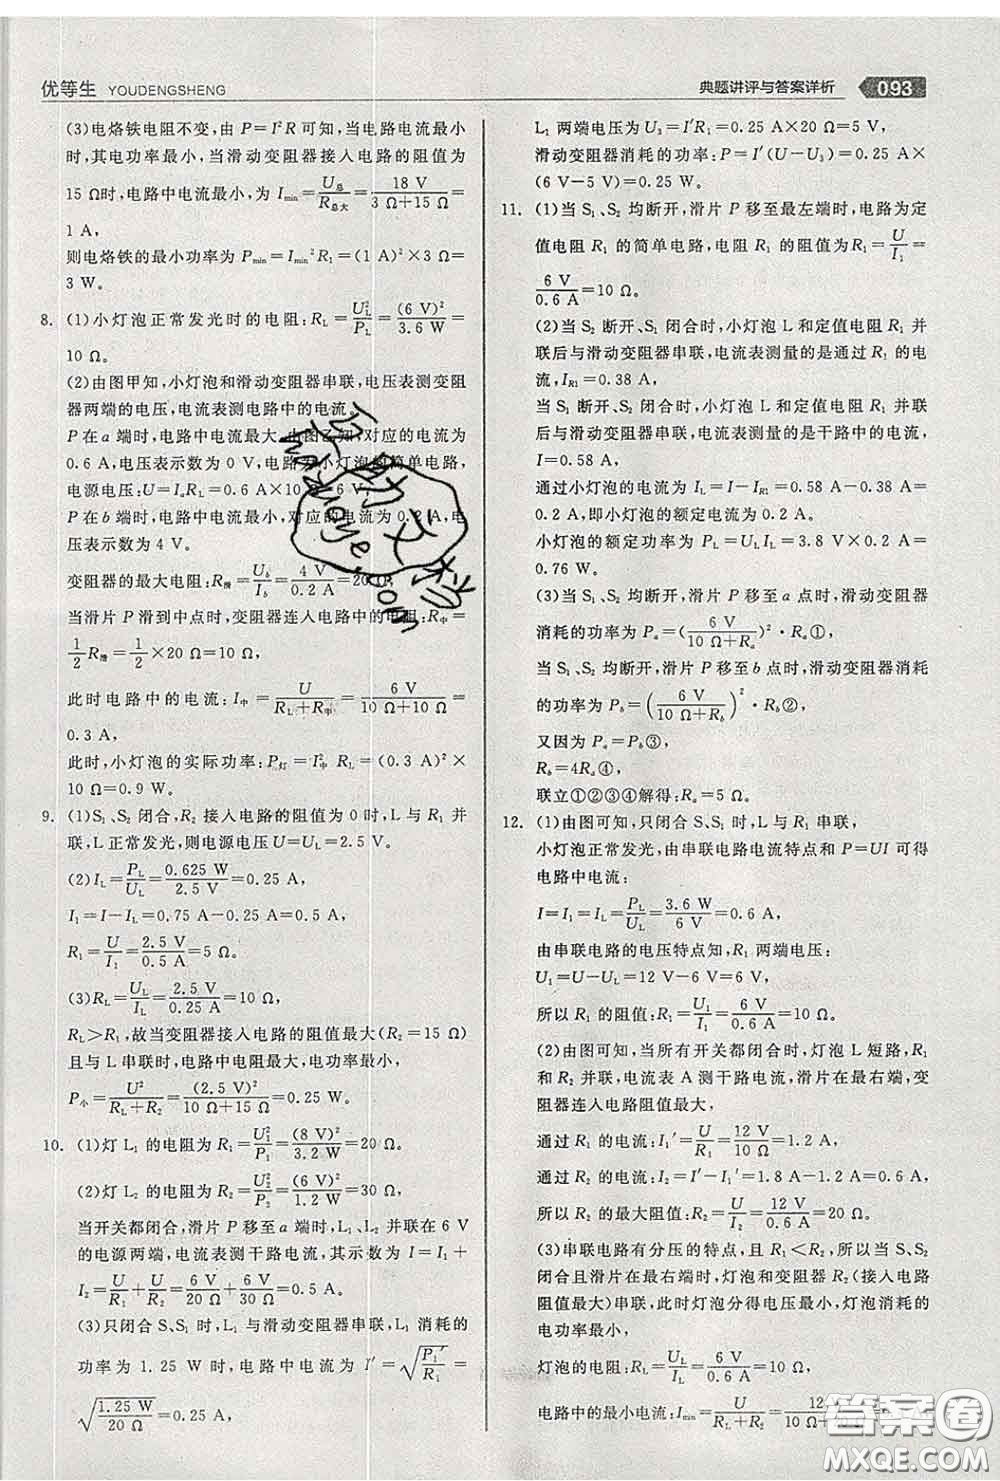 优等生 YOUDENGSHENG
典题讲评与答案详析 093
(3)电烙铁电阻不变,由 P=I²R 可知,当电路电流最小
时,其电功率最小,当滑动变阻器接入电路的阻值为
15 Ω时,电路中电流最小,为 Imin=U总/R总大=18 V/(3 Ω+15 Ω)=
1 A,
则电烙铁的最小功率为 Pmin=Imin²R1=(1 A)²×3 Ω=
3 W.
8. (1)小灯泡正常发光时的电阻:RL=UL²/PL=(6 V)²/3.6 W=
10 Ω.
(2)由图甲知,小灯泡和滑动变阻器串联,电压表测变阻
器两端的电压,电流表测电路中的电流。
P 在 a 端时,电路中电流最大,由图乙知,对应的电流为
0.6 A,电压表示数为 0 V,电路为小灯泡的简单电路,
电源电压:U=IaRL=0.6 A×10 Ω=6 V,
P 在 b 端时,电路中电流最小,对应的电流为 0.2 A,电
压表示数为 4 V.
变阻器的最大电阻:R滑=Ub/Ib=4 V/0.2 A=20 Ω,
当滑片 P 滑到中点时,变阻器连入电路中的电阻:R中=
1/2 R滑=1/2×20 Ω=10 Ω,
此时电路中的电流:I中=U/(RL+R中)=6 V/(10 Ω+10 Ω)=
0.3 A,
此时,小灯泡的实际功率:P灯=I中² RL=(0.3 A)²×
10 Ω=0.9 W.
9. (1)S1、S2 闭合,R2 接入电路的阻值为 0 时,L 与 R1 并
联,L 正常发光,则电源电压 U=UL=2.5 V.
(2)IL=PL/UL=0.625 W/2.5 V=0.25 A,
I1=I-IL=0.75 A-0.25 A=0.5 A,
R1=U/I1=2.5 V/0.5 A=5 Ω.
(3)RL=UL/IL=2.5 V/0.25 A=10 Ω,
RL>R1,故当变阻器接入电路的阻值最大(R2=15 Ω)
且与 L 串联时,电路中电阻最大,电功率最小,
P小=U²/(RL+R2)=(2.5 V)²/(10 Ω+15 Ω)=0.25 W.
10. (1)灯 L1 的电阻为 R1=U1²/P1=(8 V)²/3.2 W=20 Ω。
(2)灯 L2 的电阻为 R2=U2²/P2=(6 V)²/1.2 W=30 Ω,
当开关都闭合,滑片 P 移至 a 端时,L1、L2 并联在 6 V
的电源两端,电流表测干路电流,其示数为 I=I1+
I2=U/R1+U/R2=6 V/20 Ω+6 V/30 Ω=0.5 A.
(3)只闭合 S、S1 时,L1 与滑动变阻器串联,L1 消耗的
功率为 1.25 W 时,电路中电流为 I′=√(P1′/R1)=
√(1.25 W/20 Ω)=0.25 A,
L1 两端电压为 U3=I′R1=0.25 A×20 Ω=5 V,
滑动变阻器消耗的功率:P=I′(U-U3)=0.25 A×
(6 V-5 V)=0.25 W.
11. (1)当 S1、S2 均断开,滑片 P 移至最左端时,电路为定
值电阻 R1 的简单电路,电阻 R1 的阻值为 R1=U/I1=
6 V/0.6 A=10 Ω.
(2)当 S2 断开、S1 闭合时,小灯泡 L 和定值电阻 R1 并
联后与滑动变阻器串联,电流表测量的是通过 R1 的电
流,IR1=0.38 A,
当 S1 断开、S2 闭合时,小灯泡 L 和定值电阻 R1 并联
后与滑动变阻器串联,电流表测量的是干路中的电流,
I=0.58 A,
通过小灯泡的电流为 IL=I-IR1=0.58 A-0.38 A=
0.2 A,即小灯泡的额定电流为 0.2 A.
小灯泡的额定功率为 PL=ULIL=3.8 V×0.2 A=
0.76 W.
(3)当 S1、S2 均断开,滑片 P 移至 a 点时,滑动变阻器
消耗的功率为 Pa=(6 V/(10 Ω+Ra))²·Ra①,
当 S1、S2 均断开,滑片 P 移至 b 点时,滑动变阻器消耗
的功率为 Pb=(6 V/(10 Ω+Rb))²·Rb②,
又因为 Pa=Pb③,
Rb=4Ra④,
联立①②③④解得:Ra=5 Ω.
12. (1)由图可知,只闭合 S、S1 时,L 与 R1 串联,
小灯泡正常发光,由串联电路电流特点和 P=UI 可得
电路中电流:
I=I1=IL=PL/UL=3.6 W/6 V=0.6 A,
由串联电路的电压特点知,R1 两端电压:
U1=U-UL=12 V-6 V=6 V,
所以 R1 的阻值:R1=U1/I1=6 V/0.6 A=10 Ω.
(2)由图可知,当所有开关都闭合时,灯泡 L 短路,R1
和 R2 并联,电流表 A 测干路电流,滑片在最右端,变
阻器连入电路阻值最大,
通过 R1 的电流:I1′=U/R1=12 V/10 Ω=1.2 A,
通过 R2 的电流:I2=I′-I1′=1.8 A-1.2 A=0.6 A,
所以 R2 的最大阻值:R2=U/I2=12 V/0.6 A=20 Ω.
(3)串联电路有分压的特点,且 R1<R2,所以当 S、S2
闭合且滑片在最右端时,灯泡和变阻器 R2(接入电路
阻值最大)串联,此时灯泡分得电压最小,灯泡消耗的
电功率最小,
灯泡的电阻:RL=UL/IL=6 V/0.6 A=10 Ω,
电路中的最小电流:Imin=U/(RL+R2)=12 V/(10 Ω+20 Ω)=
答案圈
MXQE.COM